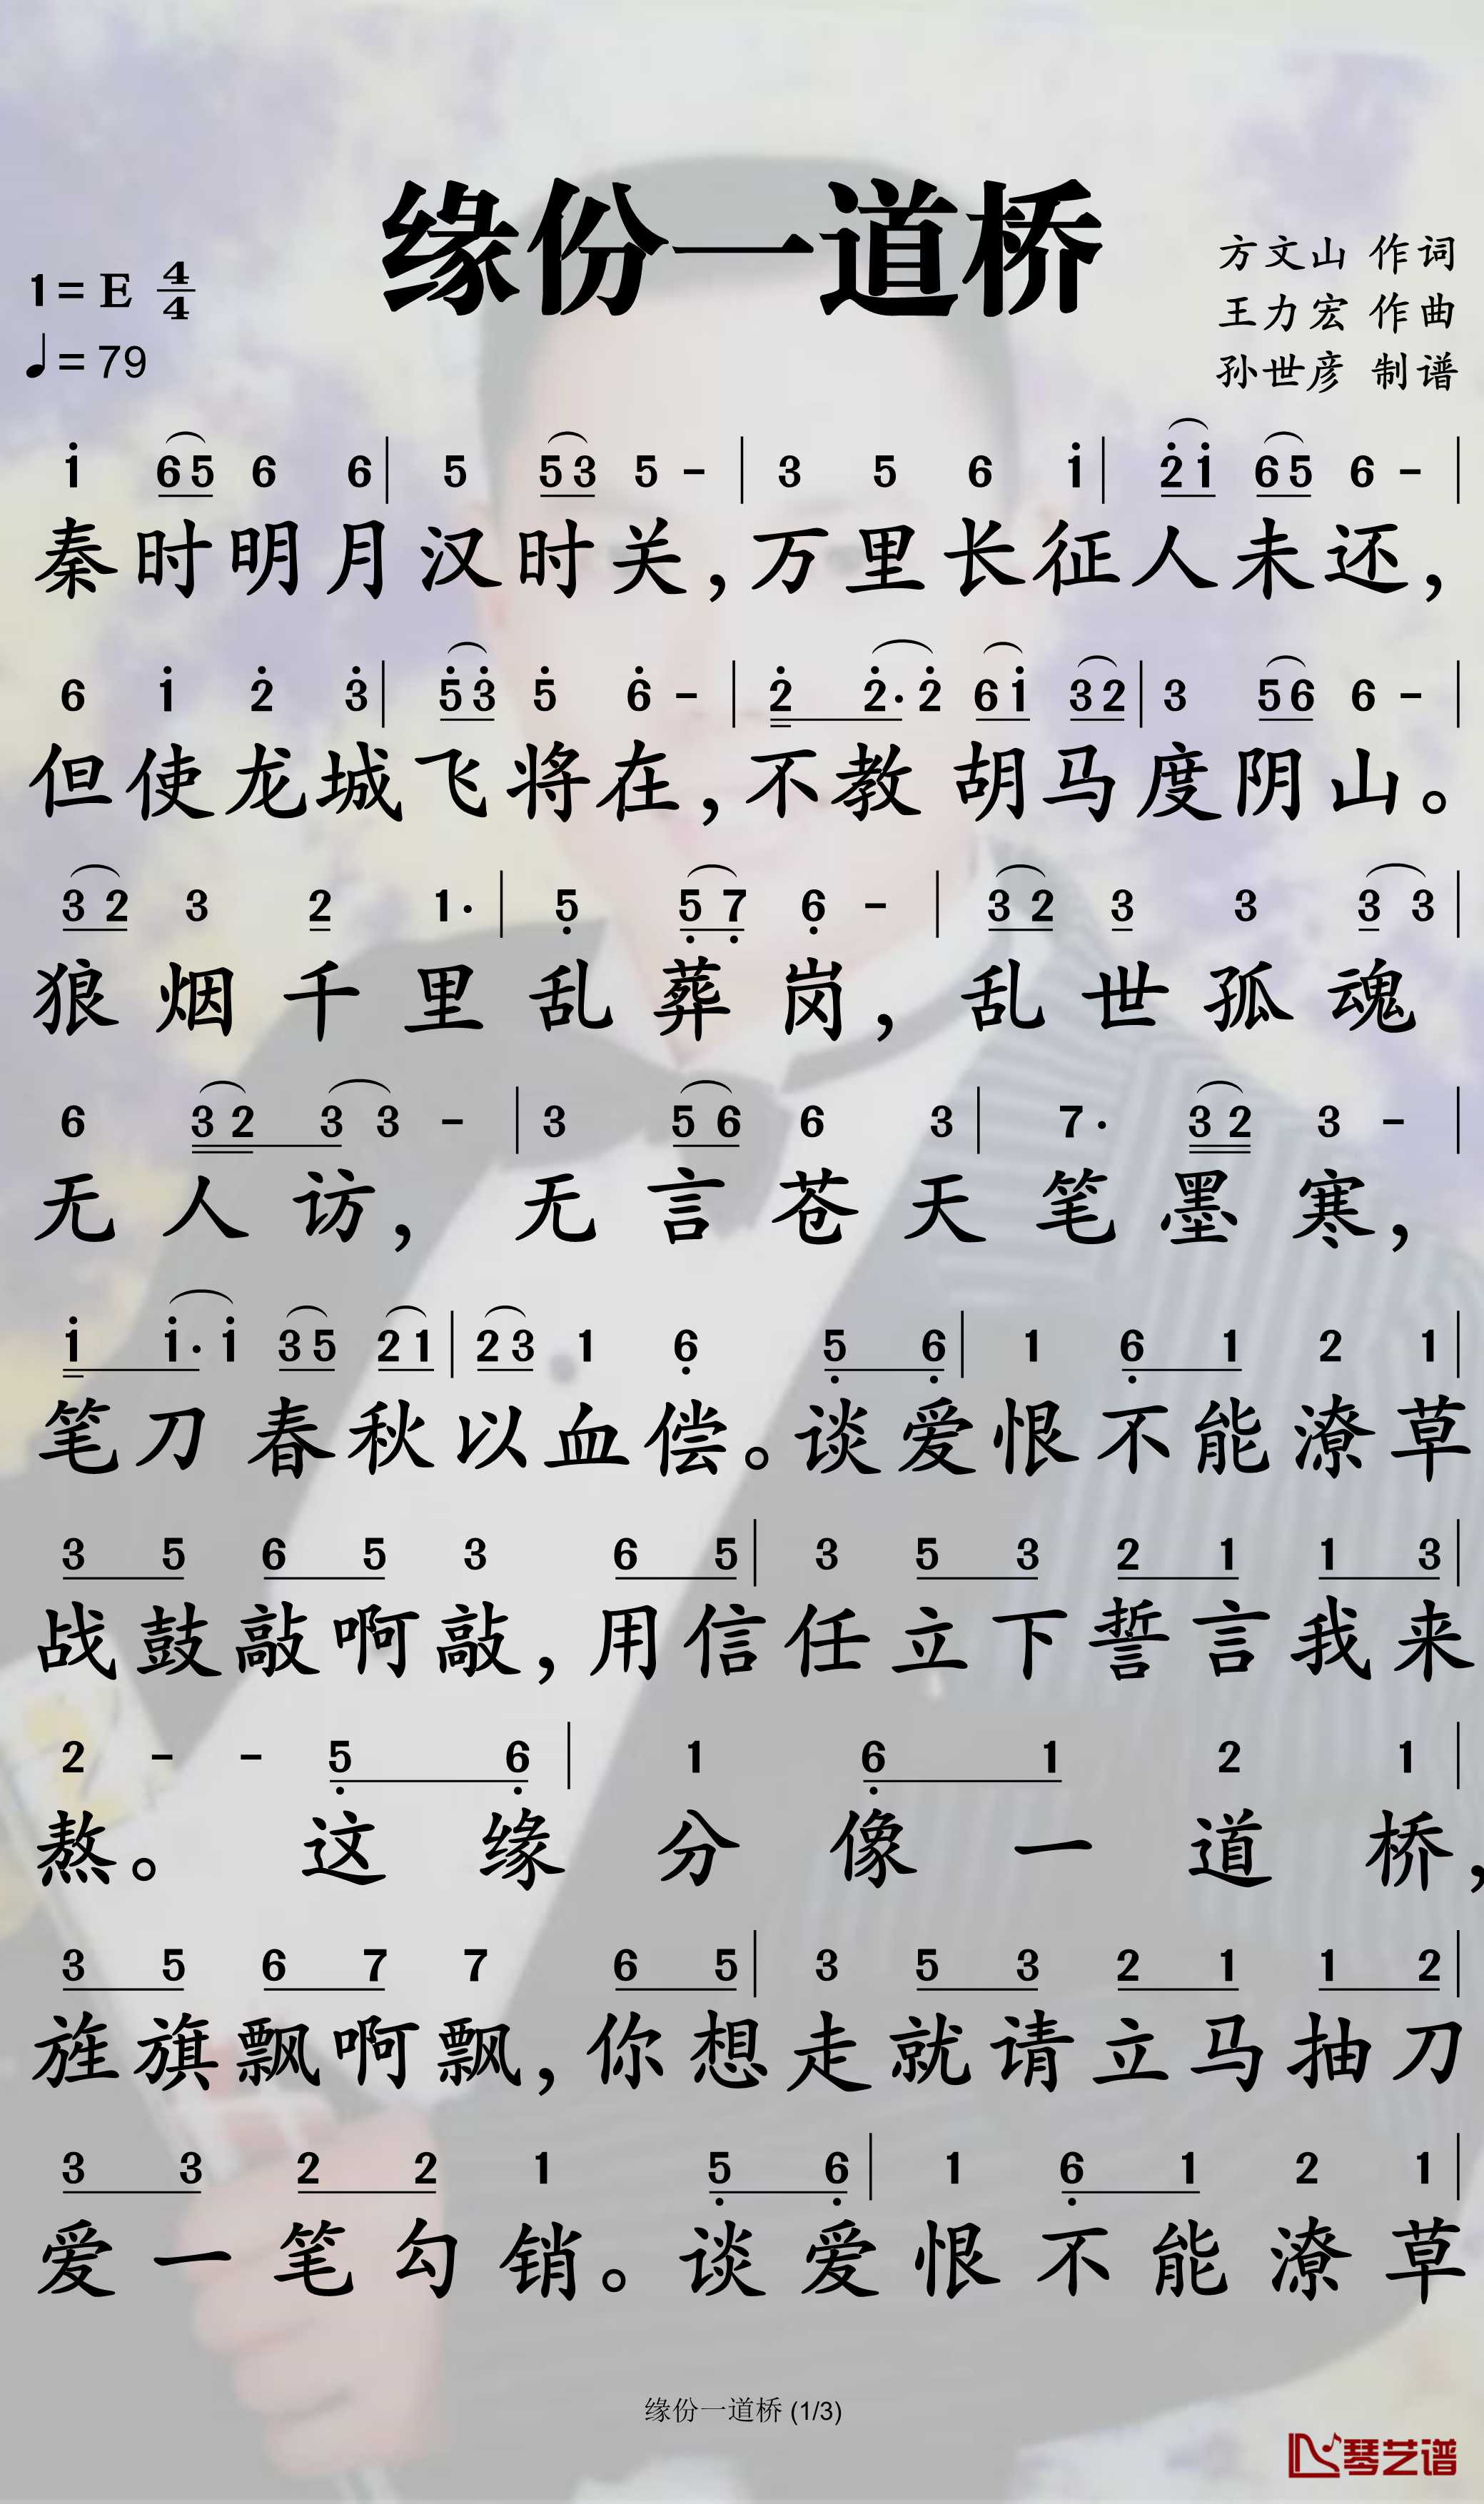 缘份一道桥
1=E 4/4
♩=79
方文山 作词
王力宏 作曲
孙世彦 制谱
1̇ 65 6 6 | 5 53 5 - | 3 5 6 1̇ | 2̇1̇ 65 6 - |
秦时明月汉时关，万里长征人未还，
6 1̇ 2̇ 3̇ | 5̇3̇ 5̇ 6̇ - | 2̇ 2̇· 2̇ 61̇ 32 | 3 56 6 - |
但使龙城飞将在，不教胡马度阴山。
32 3 2 1· | 5̣ 5̣7̣ 6̣ - | 32 3 3 3 3 |
狼烟千里乱葬岗，乱世孤魂
6 32 3 3 - | 3 56 6 3 | 7· 32 3 - |
无人访，无言苍天笔墨寒，
1̇ 1̇· 1̇ 35 21 | 23 1 6̣ 5̣ 6̣ | 1 6̣ 1 2 1 |
笔刀春秋以血偿。谈爱恨不能潦草
3 5 6 5 3 6 5 | 3 5 3 2 1 1 3 |
战鼓敲啊敲，用信任立下誓言我来
2 - - 5̣ 6̣ | 1 6̣ 1 2 1 |
熬。这缘分像一道桥，
3 5 6 7 7 6 5 | 3 5 3 2 1 1 2 |
旌旗飘啊飘，你想走就请立马抽刀
3 3 2 2 1 5̣ 6̣ | 1 6̣ 1 2 1 |
爱一笔勾销。谈爱恨不能潦草
缘份一道桥 (1/3)
琴艺谱